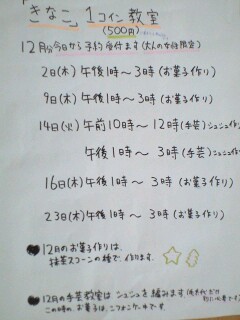 「きなこ」1コイン教室
(500円)
12月分今日から予約受付ます(大人の女性限定)
2日(木)午後1時〜3時(お菓子作り)
9日(木)午後1時〜3時(お菓子作り)
14日(火)午前10時〜12時(手芸)シュシュ作り
午後1時〜3時(手芸)シュシュ作り
16日(木)午後1時〜3時(お菓子作り)
23日(木)午後1時〜3時(お菓子作り)
12月のお菓子作りは、
抹茶スコーンの種で、作ります。
12月の手芸教室はシュシュを編みます
この時の、お菓子は、シフォンケーキです。